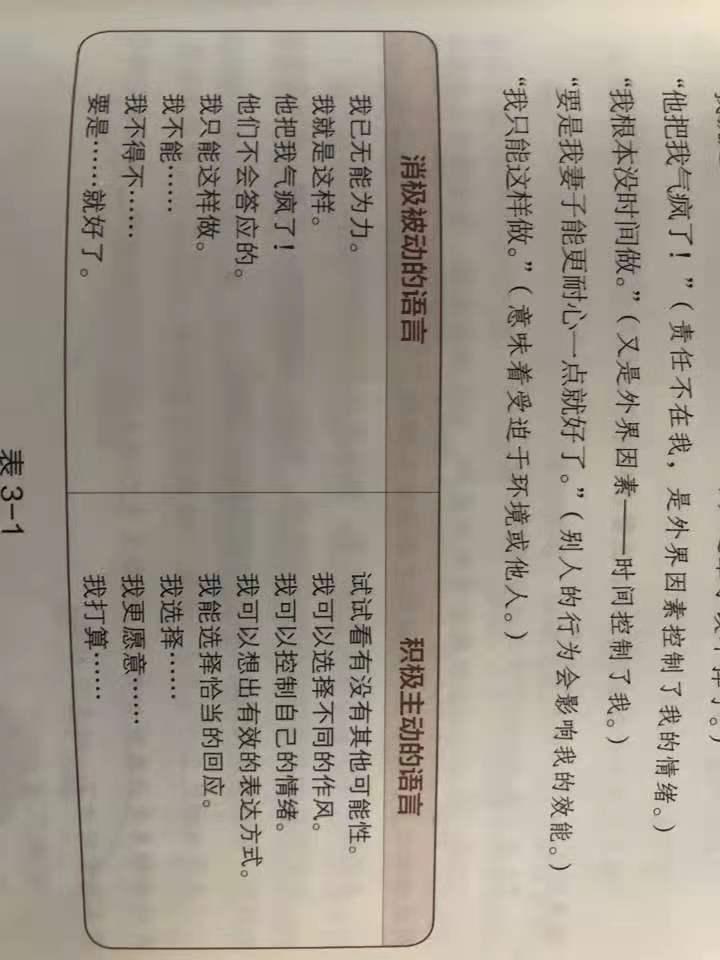 “他把我气疯了！”（责任不在我，是外界因素控制了我的情绪。）
“我根本没时间做。”（又是外界因素——时间控制了我。）
“要是我妻子能更耐心一点就好了。”（别人的行为会影响我的效能。）
“我只能这样做。”（意味着受迫于环境或他人。）
消极被动的语言 积极主动的语言
我已无能为力。 试试看有没有其他可能性。
我就是这样。 我可以选择不同的作风。
他把我气疯了！ 我可以控制自己的情绪。
他们不会答应的。 我可以想出有效的表达方式。
我只能这样做。 我能选择恰当的回应。
我不能…… 我选择……
我不得不…… 我更愿意……
要是……就好了。 我打算……
表 3-1